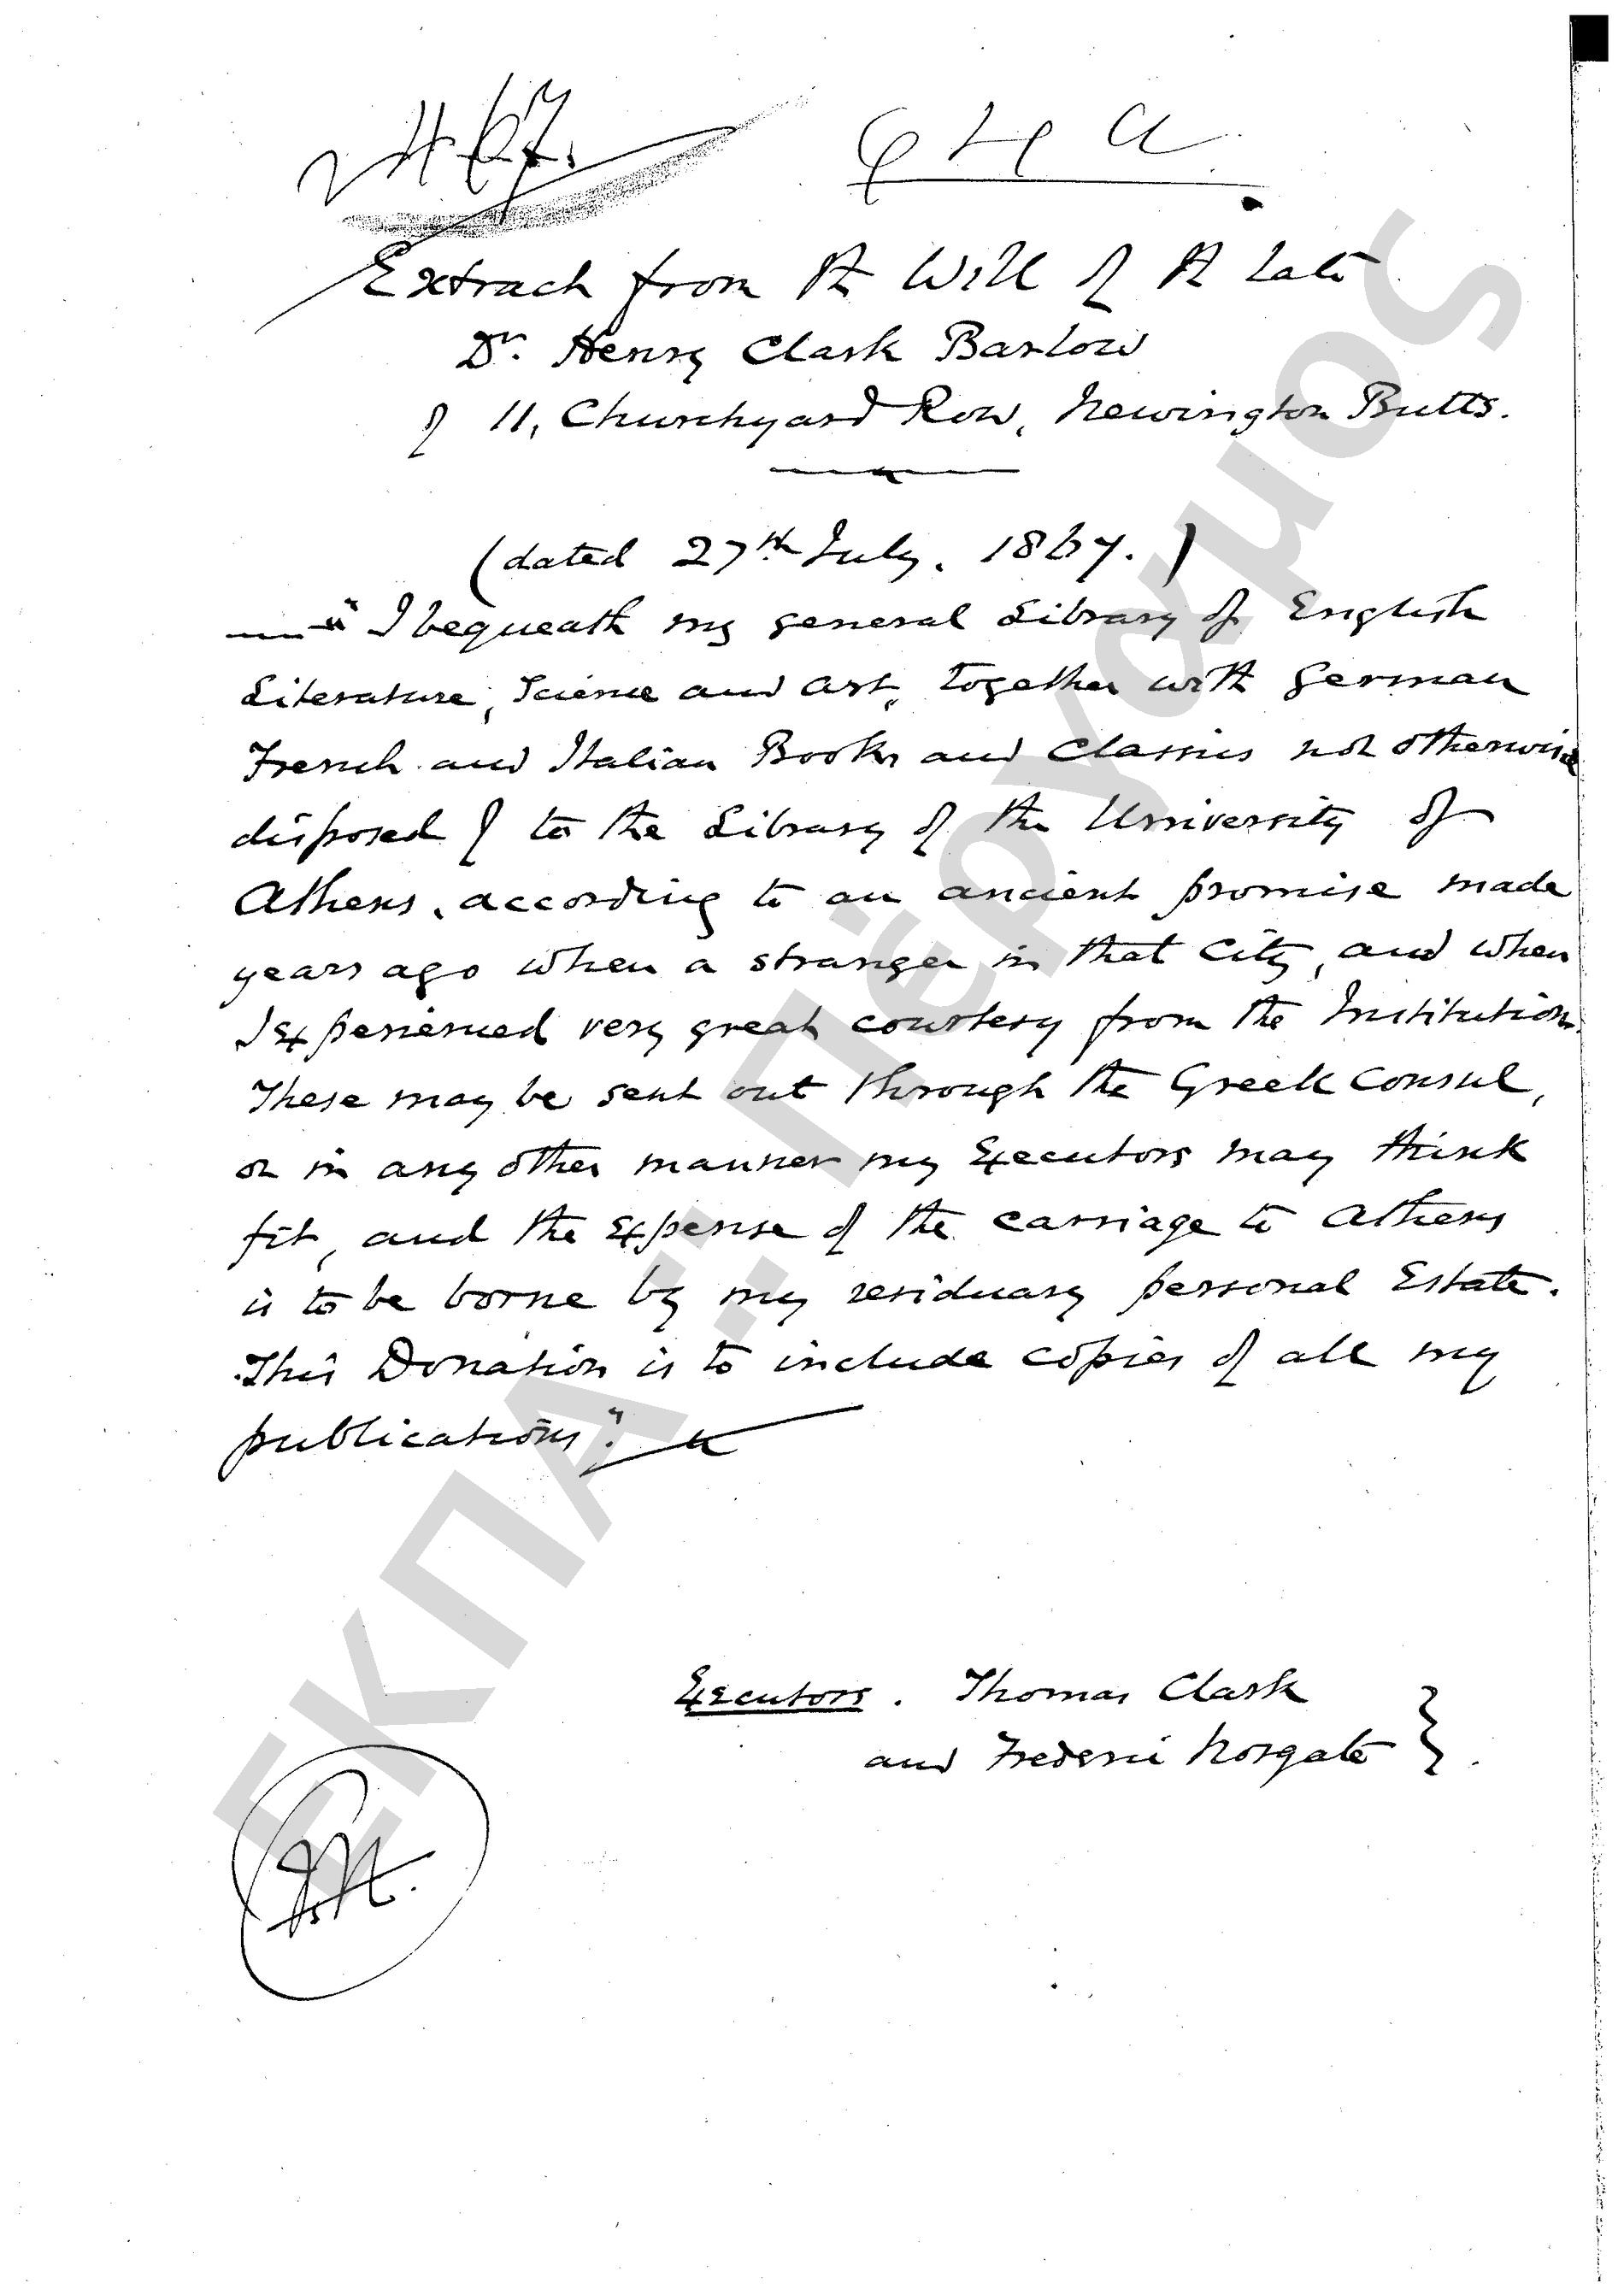 Extract from the Will of the late
Dr. Henry Clark Barlow
of 11, Churchyard Row, Newington Butts.
(dated 27th July. 1867.)
"I bequeath my general Library of English
Literature, Science and Art, together with German
French and Italian Books and Classics not otherwise
disposed of to the Library of the University of
Athens, according to an ancient promise made
years ago when a stranger in that City, and when
I experienced very great courtesy from the Institution.
These may be sent out through the Greek Consul,
or in any other manner my Executors may think
fit, and the expense of the carriage to Athens
is to be borne by my residuary personal Estate.
This Donation is to include copies of all my
publications."
Executors. Thomas Clark
and Frederic Norgate
ΕΚΠΑ: Πέργαμος